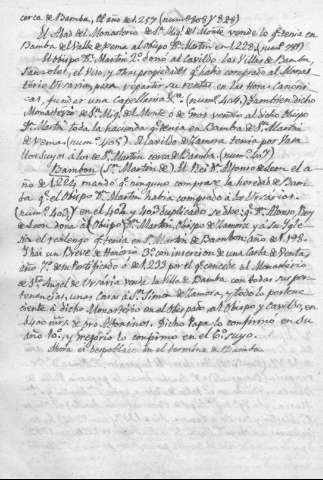 cerca de Bamba, el año de 1257 (num.s 308 y 328)
El Abad del Monasterio de Sn. Mig.l del Monte vende lo q.e tenia en
Bamba del Valle de Vena al obispo Dn. Martin en 1228 (num.
El obispo Dn. Martin 2.o dona al Cavildo las villas de Bamba,
el y otras propiedades q.e havia comprado al Monas
terio Urvarien, para repartir su rentas en las Horas canoni
cas, fundar una Capellania &.a (num.s 404) Tambien dicho
Monasterio de Sn. Mig.l del Monte ó de Gros vendio al dicho Obispo
Dn. Martin toda la hacienda q.e tenia en Bamba de Sn. Martin
de Vena (num.s 405) El Cavildo de Zamora tenia por
los suyos á los de Sn. Martin cerca de Bamba (num.s
Bambon (Sn. Martin de) El Rei Dn. Alonso de Leon el a
ño de 1224 mandó q.e ninguno comprase la heredad de Bam
ba q.e el obispo Dn. Martin habia comprado á los Urvarios.
(num.s 403) en el 402 y 402 duplicado se dice: q.e Dn. Alonso, Rey
de Leon dona al Obispo Dn. Martin, obispo de Zamora y á su Igle
sia el realengo q.e tenia en Sn. Martin de Bambon, año de 1198.
Hai un Breve de Honorio 3.o con insercion de una Carta de Venta,
año 7.o de su Pontificado ó de 1233 por el q.e concede el Monasterio
de Sn. Angel de Urvaria vende la Villa de Bamba con todas sus per
tenencias, unas casas á Sn. Simon de Zamora, y todo lo pertene
ciente á dicho Monasterio en el obispado al Obispo y Cavildo, en
1400 mrs. de oro Alfonsinos. Dicho Papa lo confirmó en su
año 10.o, y Gregorio lo confirmó en el 6.o suyo.
Ahora es despoblado en el termino de Bamba.